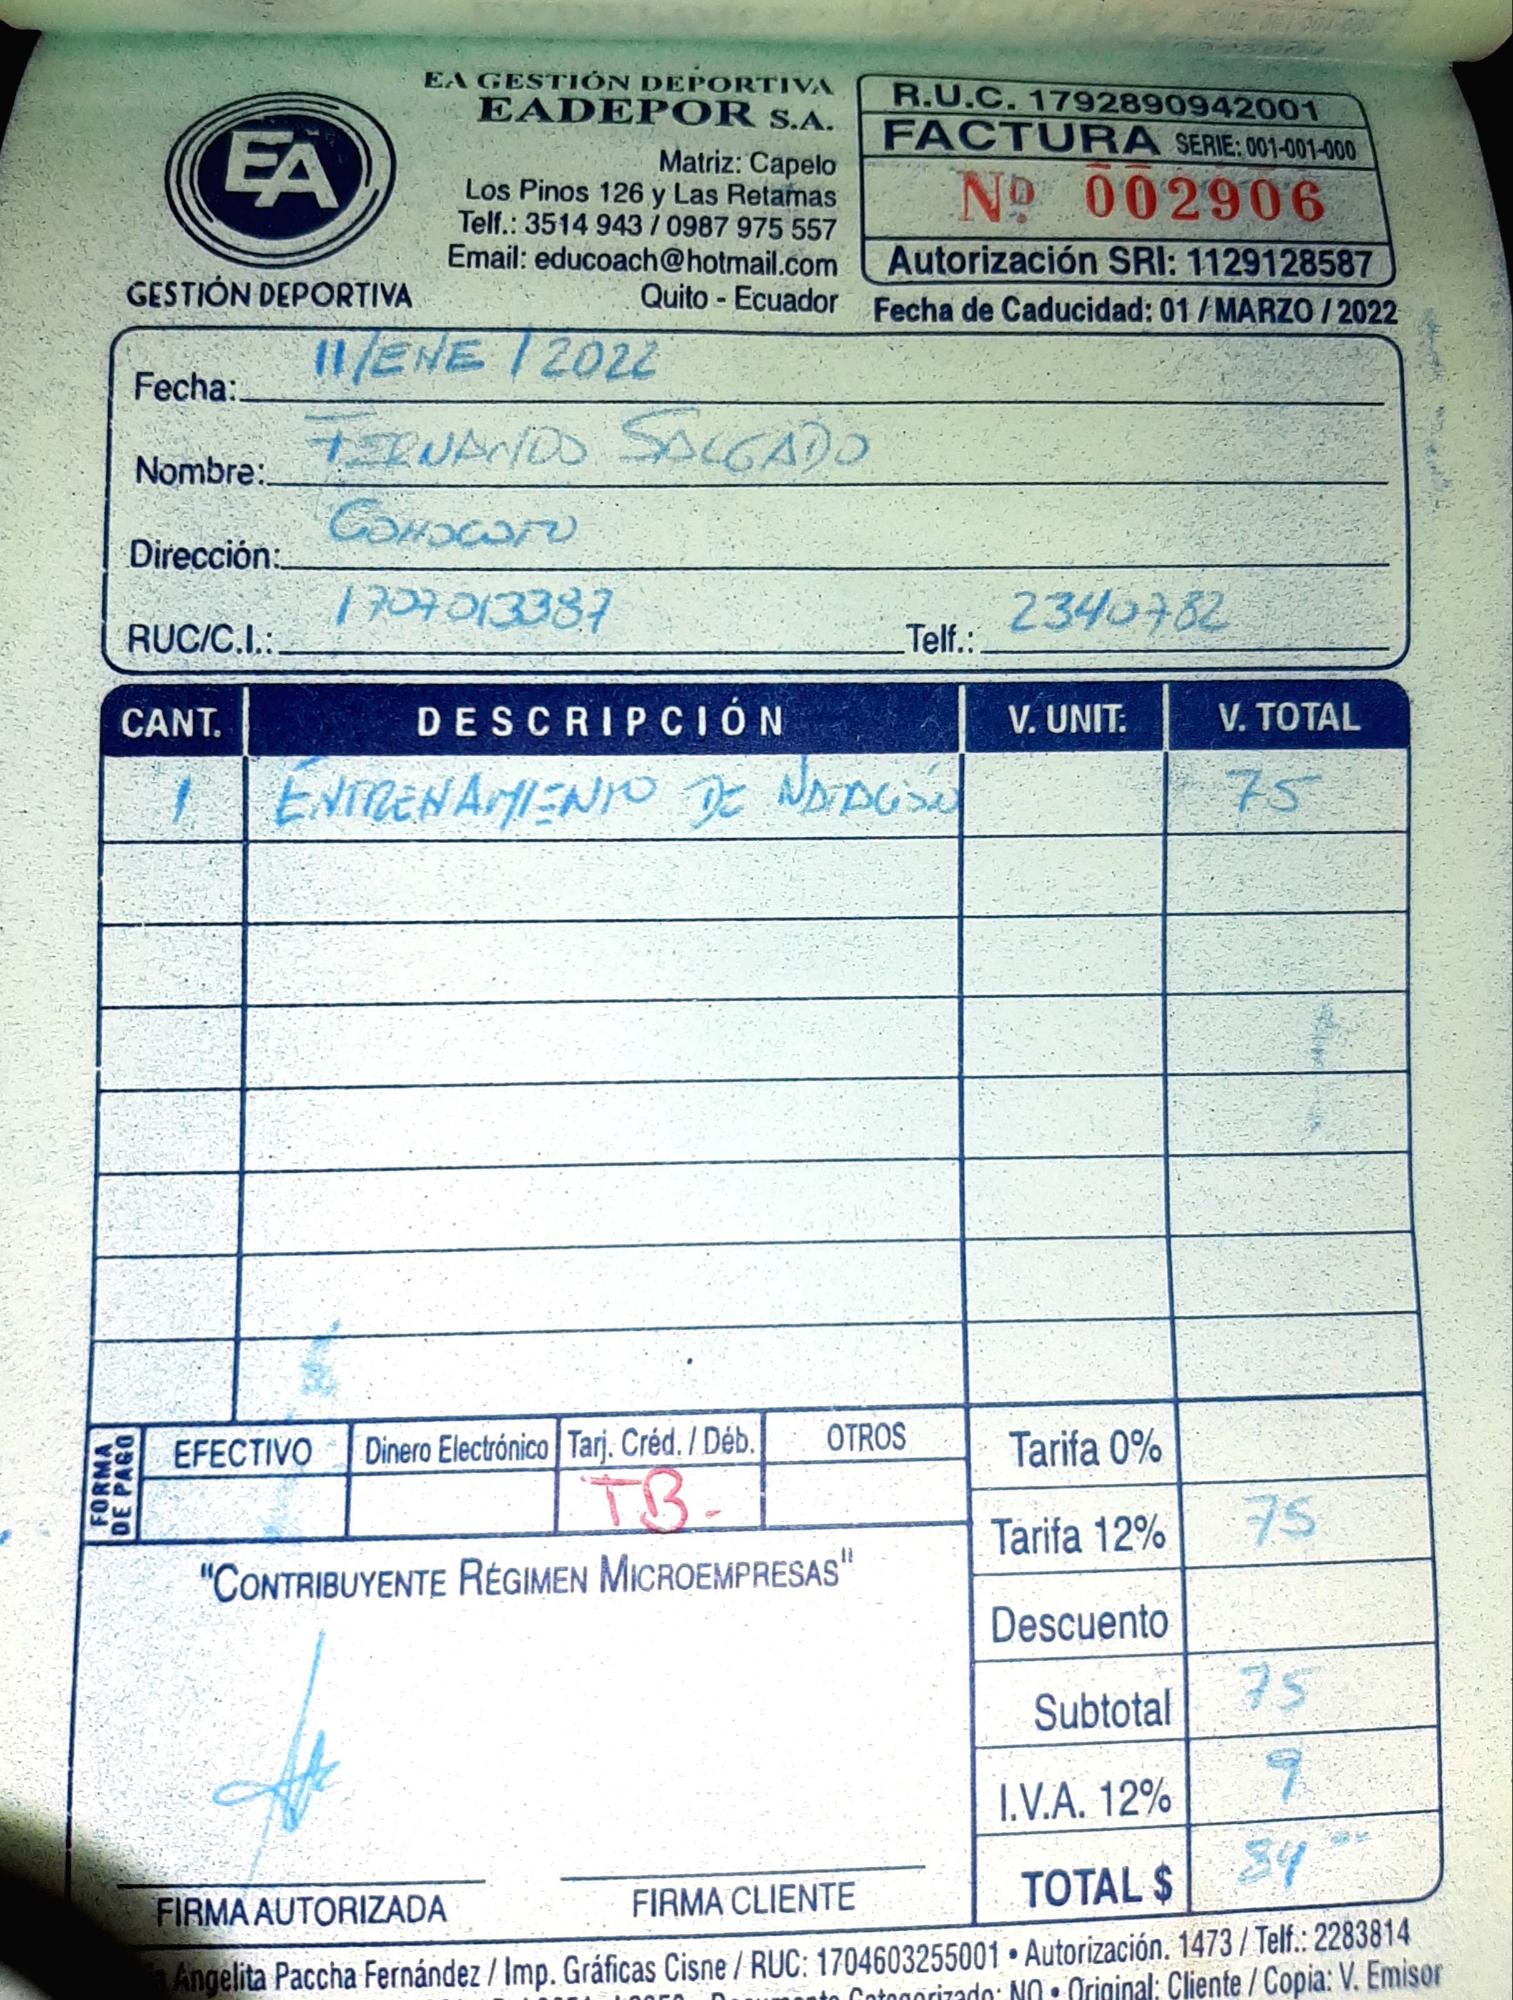 EA GESTIÓN DEPORTIVA
EADEPOR S.A.
Matriz: Capelo
Los Pinos 126 y Las Retamas
Telf.: 3514 943 / 0987 975 557
Email: educoach@hotmail.com
Quito - Ecuador
EA
GESTIÓN DEPORTIVA
R.U.C. 1792890942001
FACTURA SERIE: 001-001-000
Nº 002906
Autorización SRI: 1129128587
Fecha de Caducidad: 01 / MARZO / 2022
Fecha: 11/ENE/2022
Nombre: FERNANDO SALGADO
Dirección: CONOCOTO
RUC/C.I.: 1707013387 Telf.: 2340782
CANT. DESCRIPCIÓN V. UNIT: V. TOTAL
1 ENTRENAMIENTO DE NATACIÓN 75
FORMA DE PAGO EFECTIVO Dinero Electrónico Tarj. Créd. / Déb. OTROS
TB.
Tarifa 0%
Tarifa 12% 75
Descuento
Subtotal 75
I.V.A. 12% 9
TOTAL $ 84
"CONTRIBUYENTE RÉGIMEN MICROEMPRESAS"
FIRMA AUTORIZADA FIRMA CLIENTE
Angelita Paccha Fernández / Imp. Gráficas Cisne / RUC: 1704603255001 • Autorización. 1473 / Telf.: 2283814
Categorizado: NO • Original: Cliente / Copia: V. Emisor